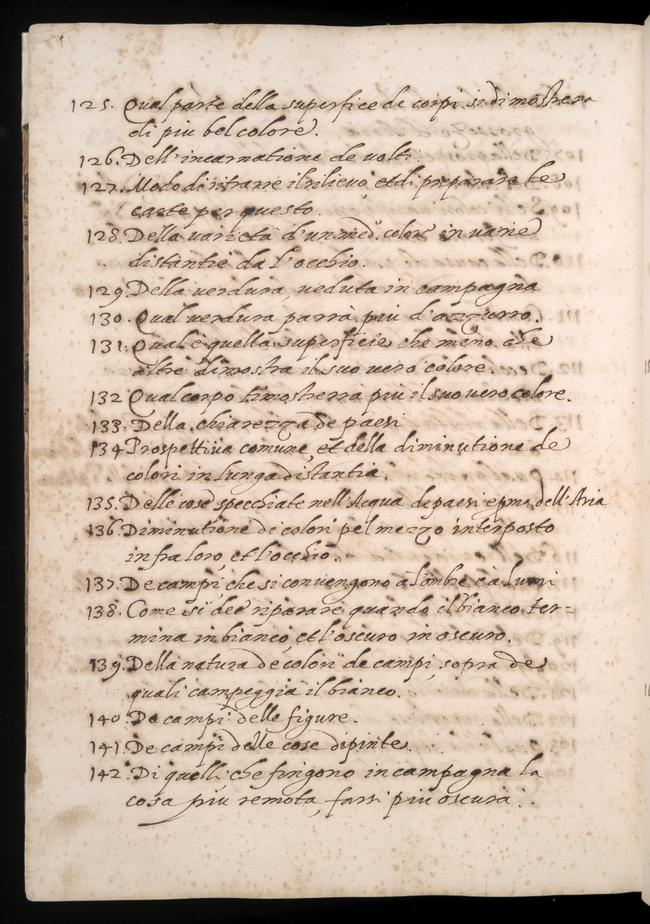 125. Qual parte della superfice de corpi si dimostrera
di piu bel colore.
126. Dell'incarnatione de volti.
127. Modo di ritrarre il rilievo, et di preparare le
carte per questo.
128. Della varietà d'un med.o colore in varie
distantie da l'occhio.
129. Della verdura, veduta in campagna
130. Qual verdura parrà piu d'azzurro.
131. Qual è quella superficie che meno che
altre dimostra il suo vero colore.
132 Qual corpo ti mosterrà più il suo vero colore.
133. Della chiarezza de paesi
134 Prospettiva comune, et della diminutione de
colori in lunga distantia.
135. Delle cose specchiate nell'Acqua de paesi e pma dell'Aria
136. Diminutione di colori pel mezzo interposto
infra loro, et l'occhio.
137. De campi, che si convengono a l'ombre e a lumi
138. Come si dee riparare quando il bianco ter=
mina in bianco, et l'oscuro in oscuro.
139. Della natura de colori de campi, sopra de
quali campeggia il bianco.
140. De campi delle figure.
141. De campi delle cose dipinte.
142. Di quelli, che fingono in campagna la
cosa piu remota, farsi piu oscura.